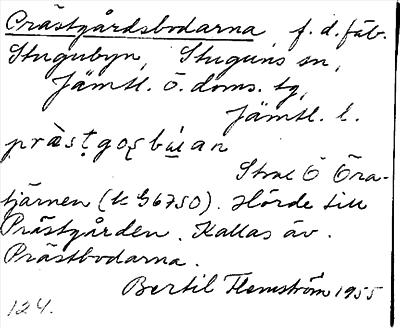 Prästgårdsbodarna f. d. fäb.
Stugubyn, Stuguns sn,
Jämtl. ö. doms. tg,
Jämtl. l.
Strax Ö Öra-
tjärnen (k G6750). Hörde till
Prästgården. Kallas äv.
Prästbodarna.
Bertil Flemström 1955
124.